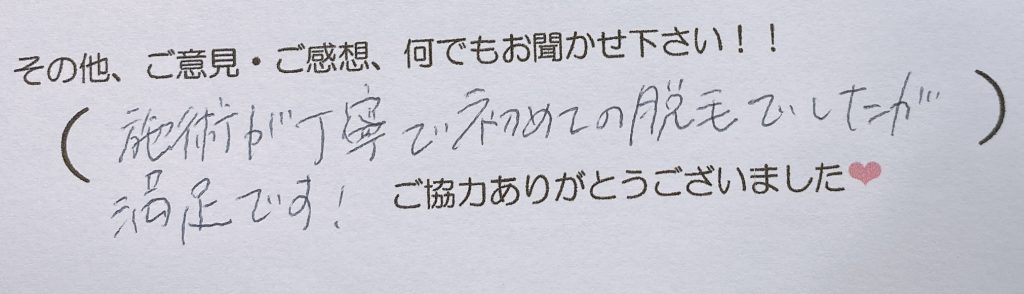 その他、ご意見・ご感想、何でもお聞かせ下さい！！
（施術が丁寧で初めての脱毛でしたが）
満足です！
ご協力ありがとうございました❤